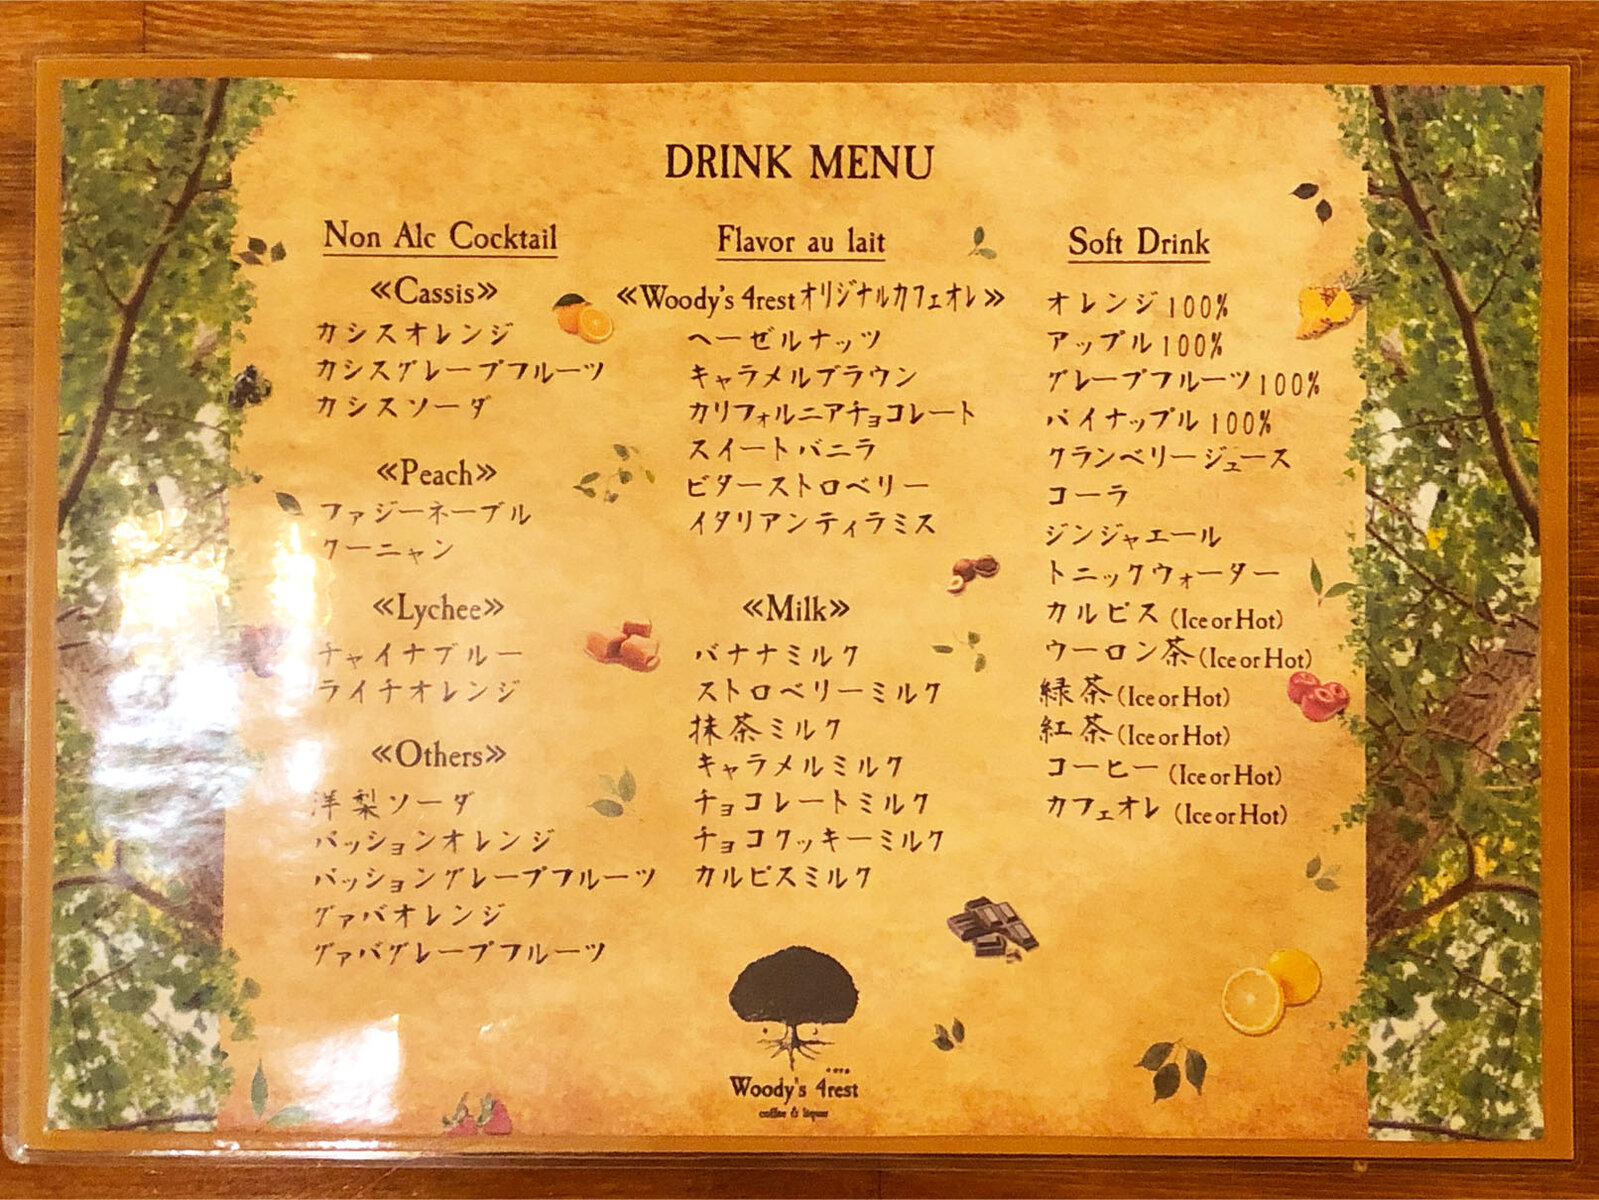 DRINK MENU
Non Alc Cocktail
≪Cassis≫
カシスオレンジ
カシスグレープフルーツ
カシスソーダ
≪Peach≫
ファジーネーブル
クーニャン
≪Lychee≫
チャイナブルー
ライチオレンジ
≪Others≫
洋梨ソーダ
パッションオレンジ
パッショングレープフルーツ
グァバオレンジ
グァバグレープフルーツ
Flavor au lait
≪Woody's 4restオリジナルカフェオレ≫
ヘーゼルナッツ
キャラメルブラウン
カリフォルニアチョコレート
スイートバニラ
ビターストロベリー
イタリアンティラミス
≪Milk≫
バナナミルク
ストロベリーミルク
抹茶ミルク
キャラメルミルク
チョコレートミルク
チョコクッキーミルク
カルピスミルク
Soft Drink
オレンジ100%
アップル100%
グレープフルーツ100%
パイナップル100%
クランベリージュース
コーラ
ジンジャエール
トニックウォーター
カルピス (Ice or Hot)
ウーロン茶 (Ice or Hot)
緑茶 (Ice or Hot)
紅茶 (Ice or Hot)
コーヒー (Ice or Hot)
カフェオレ (Ice or Hot)
Woody's 4rest
coffee & liquor